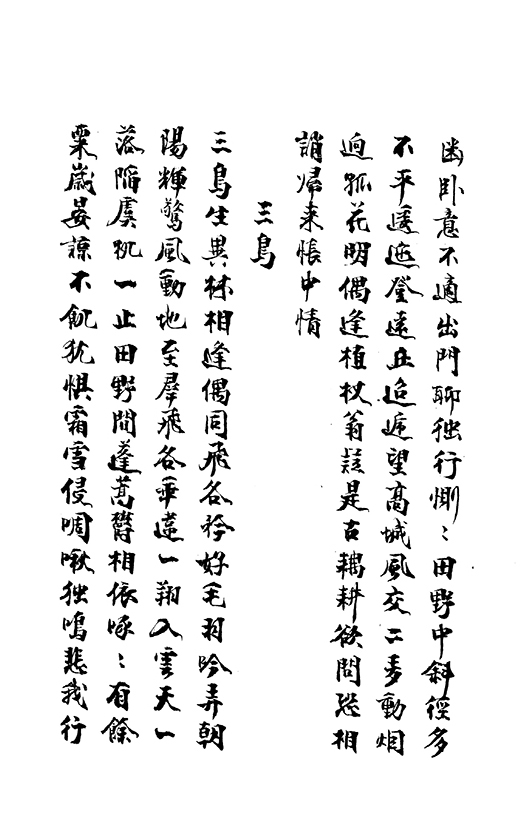 幽卧意不適出門聊独行惻〻田野中斜徑多
不平逶迤登遠丘迢遞望高城風交二麥動烟
迥孤花明偶逢植杖翁疑是古耦耕欲問恐相
誚帰来悵中情
三鳥
三鳥生異林相逢偶同飛各矜好毛羽吟弄朝
陽輝驚風動地至羣飛各乖違一翔入雲天一
落陥虞机一止田野間蓬蒿欝相依啄〻有餘
粟歲晏諒不飢犹惧霜雪侵啁啾独鳴悲我行